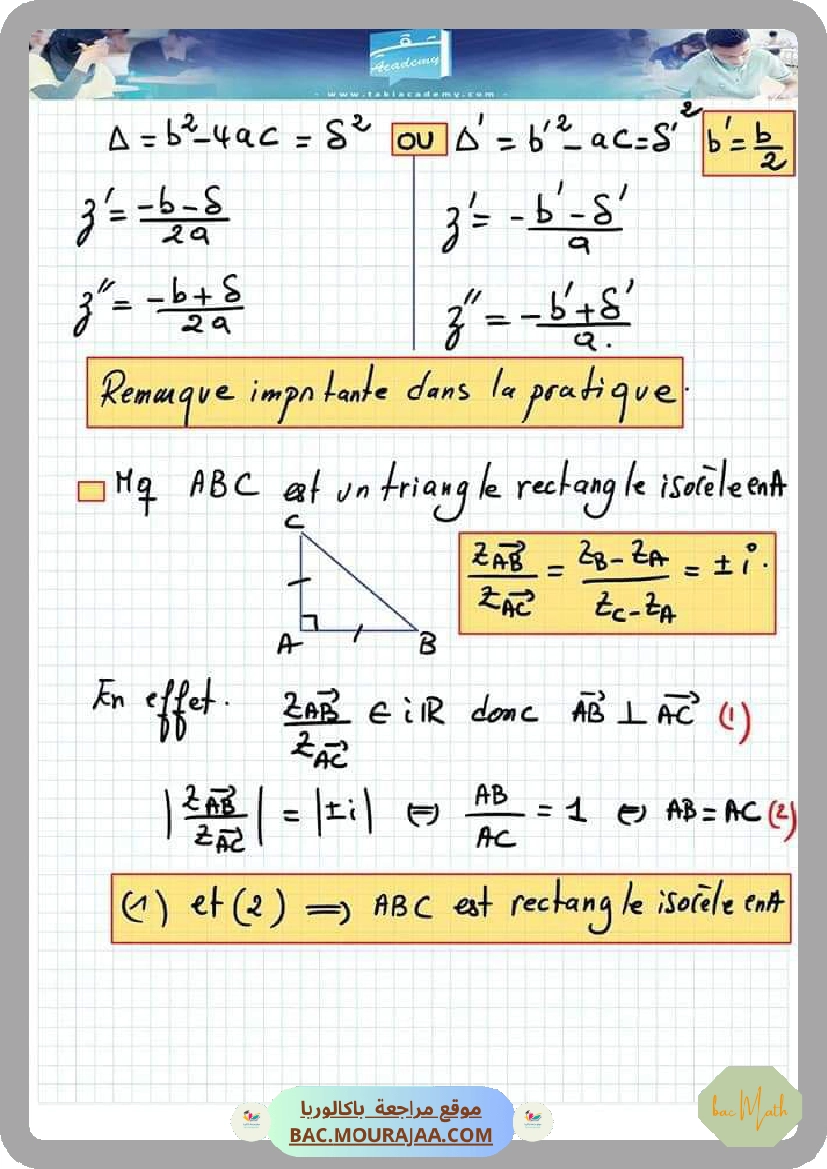 Academy
- www.takiacademy.com -
Δ = b² - 4ac = δ² OU Δ' = b'² - ac = δ'² b' = b/2
z' = (-b - δ)/2a z' = (-b' - δ')/a
z'' = (-b + δ)/2a z'' = (-b' + δ')/a.
Remarque importante dans la pratique.
Mq ABC est un triangle rectangle isocèle en A
C
A B
z_AB⃗ / z_AC⃗ = (z_B - z_A)/(z_C - z_A) = ± i.
En effet. z_AB⃗ / z_AC⃗ ∈ iℝ donc AB⃗ ⊥ AC⃗ (1)
|z_AB⃗ / z_AC⃗| = |±i| ⇔ AB/AC = 1 ⇔ AB = AC (2)
(1) et (2) ⟹ ABC est rectangle isocèle en A
موقع مراجعة باكالوريا
BAC.MOURAJAA.COM
bac Math